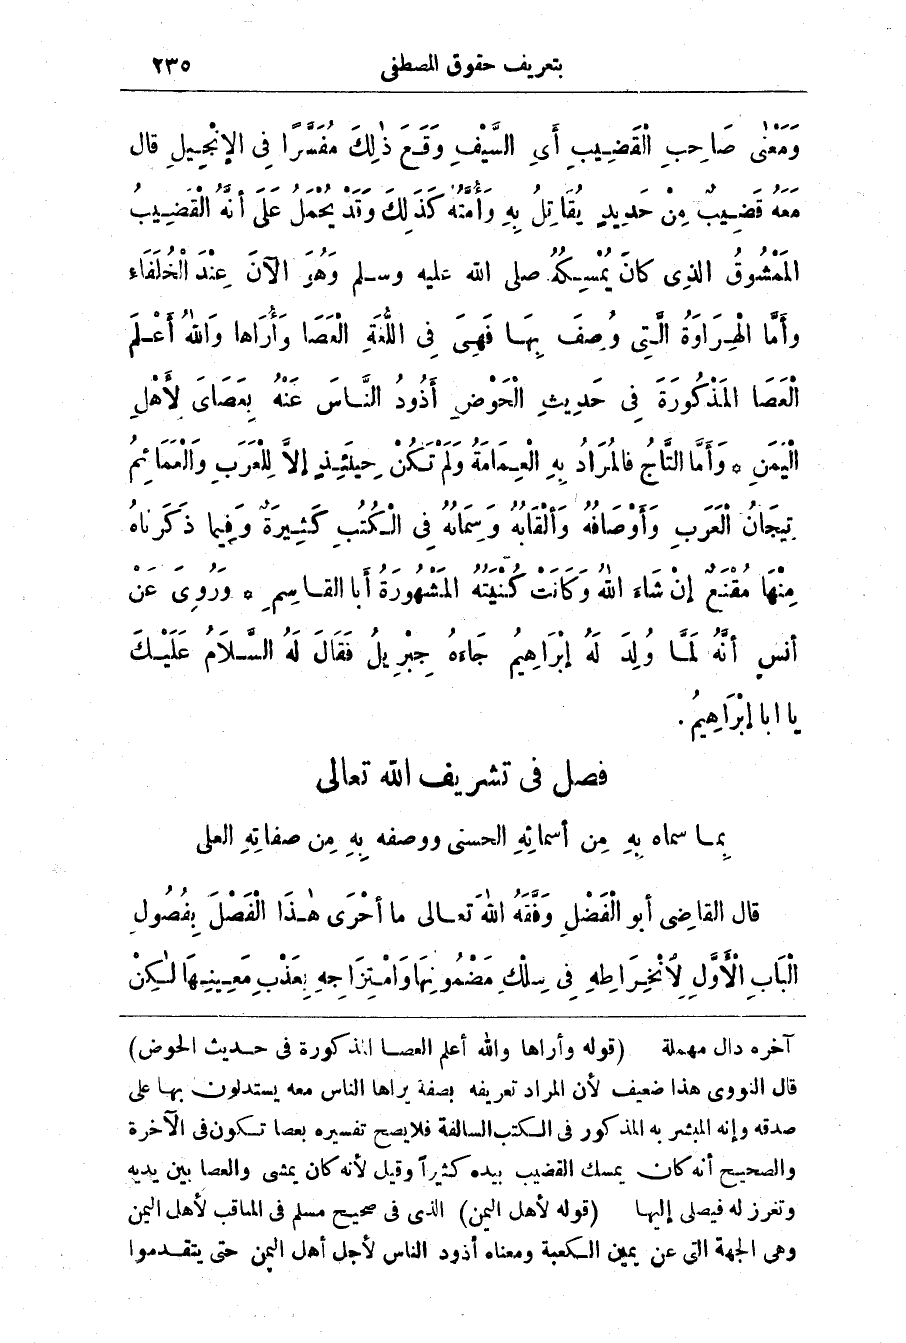 بتعريف حقوق المصطفى ٢٣٥
وَمَعْنٰى صَاحِبِ الْقَضِيبِ أَىِ السَّيْفِ وَقَعَ ذٰلِكَ مُفَسَّرًا فِى الإِنْجِيلِ قال
مَعَهُ قَضِيبٌ مِنْ حَدِيدٍ يُقَاتِلُ بِهِ وَأُمَّتُهُ كَذَلِكَ وَقَدْ يُحْمَلُ عَلَى أَنَّهُ الْقَضِيبُ
المَمْشُوقُ الذِى كانَ يُمْسِكُهُ صلى الله عليه وسلم وَهُوَ الآنَ عِنْدَ الْخُلَفَاءِ
وأَمَّا الْهِرَاوَةُ الَّتِى وُصِفَ بِهَا فَهِىَ فِى اللُّغَةِ الْعَصَا وَأُرَاهَا وَاللهُ أَعْلَمُ
الْعَصَا المَذْكُورَةَ فِى حَدِيثِ الْحَوْضِ أَذُودُ النَّاسَ عَنْهُ بِعَصَاىَ لِأَهْلِ
الْيَمَنِ * وَأَمَّا التَّاجُ فالمُرَادُ بِهِ الْعِمَامَةُ وَلَمْ تَكُنْ حِينَئِذٍ إلاَّ لِلْعَرَبِ وَالْعَمَائِمُ
تِيجَانُ الْعَرَبِ وَأَوْصَافُهُ وَأَلْقَابُهُ وَسِمَاتُهُ فِى الْكُتُبِ كَثِيرَةٌ وَفِيما ذَكَرْناهُ
مِنْهَا مُقْنَعٌ إنْ شَاءَ اللهُ وَكَانَتْ كُنْيَتُهُ المَشْهُورَةُ أبا القاسِمِ * وَرُوِىَ عَنْ
أنسٍ أنَّهُ لَمَّا وُلِدَ لَهُ إبْرَاهِيمُ جَاءَهُ جِبْرِيلُ فَقَالَ لَهُ السَّلَامُ عَلَيْكَ
يا ابا إبْرَاهِيمُ .
فصل فى تشريف الله تعالى
بِمَا سماه بِهِ مِن أسمائِهِ الحسنى ووصفه بِهِ مِن صفاتِهِ العلى
قال القاضِى أبو الْفَضْلِ وَفَّقَهُ اللهُ تَعالى ما أَحْرَى هٰذَا الْفَصْلَ بِفُصُولِ
الْبَابِ الْأَوَّلِ لِانْخِرَاطِهِ فِى سِلْكِ مَضْمُونِهَا وَامْتِزَاجِهِ بِعَذْبِ مَعِينِهَا لٰكِنْ
آخره دال مهملة (قوله وأراها والله أعلم العصا المذكورة فى حديث الحوض)
قال النووى هذا ضعيف لأن المراد تعريفه بصفة يراها الناس معه يستدلون بها على
صدقه وإنه المبشر به المذكور فى الكتب السالفة فلايصح تفسيره بعصا تكون فى الآخرة
والصحيح أنه كان يمسك القضيب بيده كثيراً وقيل لأنه كان يمشى والعصا بين يديه
وتغرز له فيصلى إليها (قوله لأهل اليمن) الذى فى صحيح مسلم فى المناقب لأهل اليمن
وهى الجهة التى عن يمين الكعبة ومعناه أذود الناس لأجل أهل اليمن حتى يتقدموا